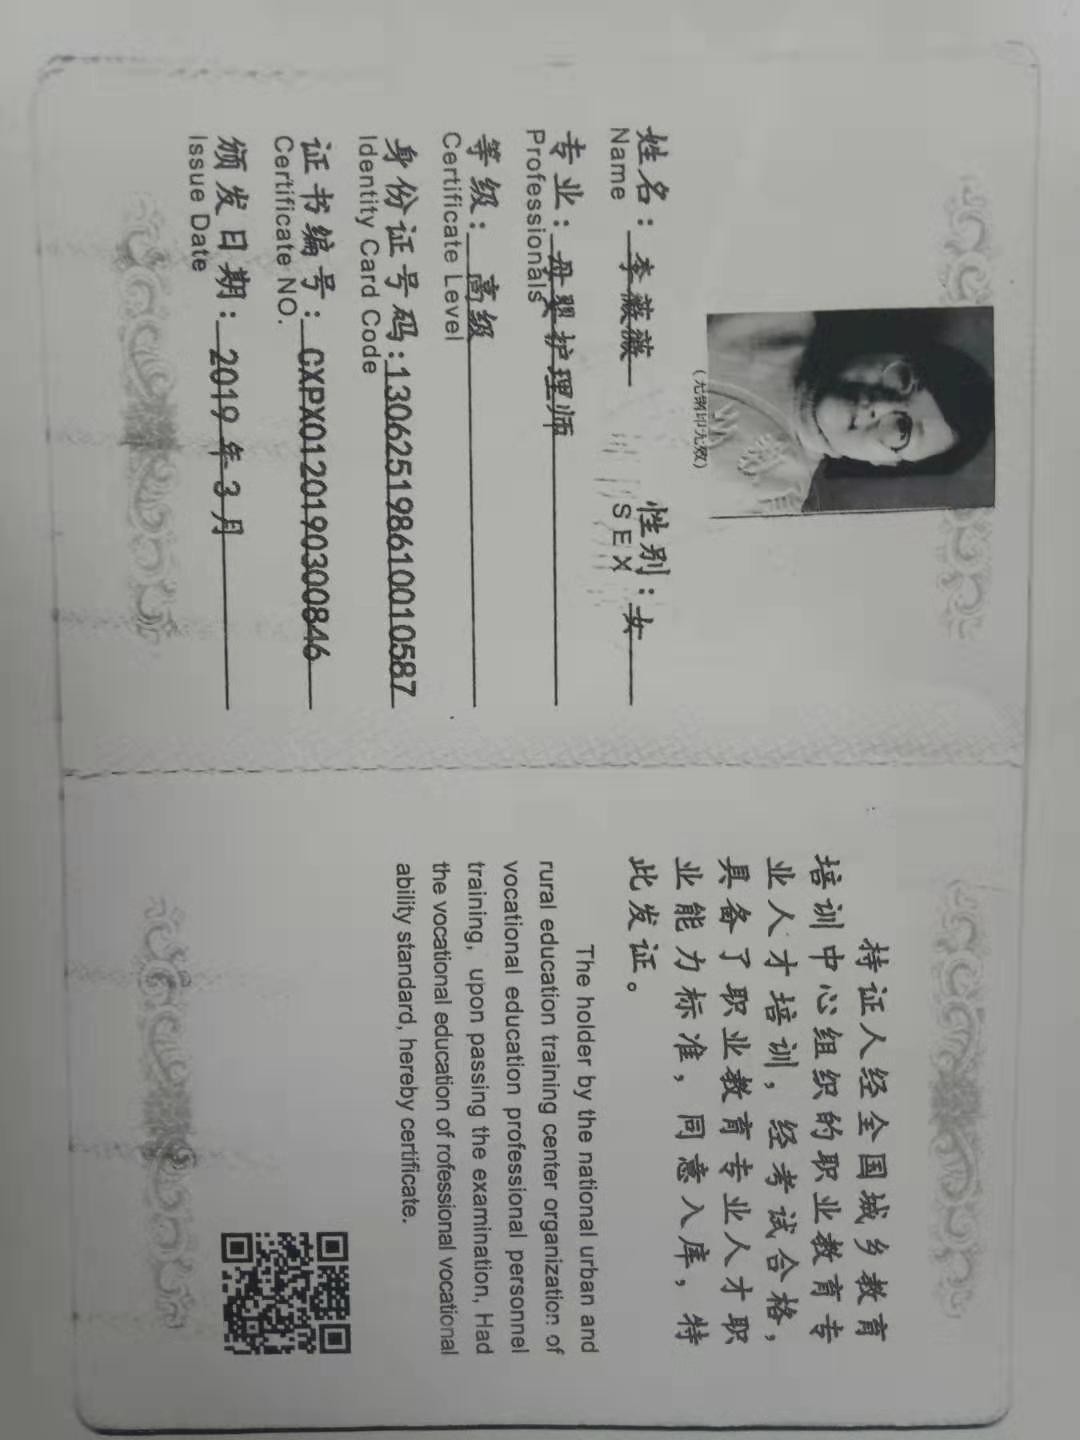 (无钢印无效)
姓名：李薇薇 性别：女
Name SEX
专业：母婴护理师
Professionals
等级：高级
Certificate Level
身份证号码：130625198610010587
Identity Card Code
证书编号：CXPX0120190300846
Certificate NO.
颁发日期：2019年3月
Issue Date
持证人经全国城乡教育
培训中心组织的职业教育专
业人才培训，经考试合格，
具备了职业教育专业人才职
业能力标准，同意入库，特
此发证。
The holder by the national urban and
rural education training center organization of
vocational education professional personnel
training, upon passing the examination, Had
the vocational education of rofessional vocational
ability standard, hereby certificate.